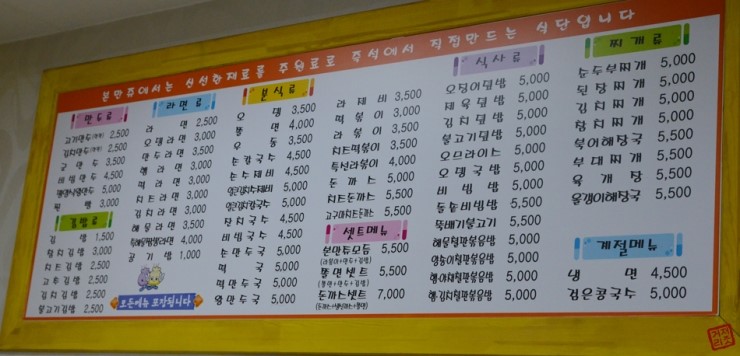 분만주에서는 신선한재료를 주원료로 즉석에서 직접만드는 식단입니다
만두류
고기만두 2,500
김치만두 2,500
군만두 3,500
비빔만두 4,500
5,000
찐빵 3,000
김밥류
김밥 1,500
참치김밥 3,000
치즈김밥 2,500
고추김밥 2,500
김치김밥 2,500
불고기김밥 2,500
라면류
라면 2,500
오뎅라면 3,000
만두라면 3,000
떡라면 3,000
치즈라면 3,000
김치라면 3,000
해물라면 3,500
4,000
공기밥 1,000
모든메뉴 포장됩니다
분식류
오뎅 3,500
쫄면 4,000
우동 3,500
손칼국수 4,500
손수제비 4,500
얼큰김치수제비 5,000
얼큰김치칼국수 5,000
잔치국수 4,500
비빔국수 4,500
손만두국 5,000
떡국 5,000
떡만두국 5,000
라제비 3,500
떡볶이 3,000
라볶이 3,500
치즈떡볶이 3,500
특선라볶이 4,000
돈까스 5,000
치즈돈까스 5,500
고구마치즈돈까스 5,500
셋트메뉴
분만듀모듬 5,500
(라볶이+만두+김밥)
쫄면셋트 5,500
(쫄면+만두+김밥)
돈까스셋트 7,000
식사류
오징어덮밥 5,000
제육덮밥 5,000
김치덮밥 5,000
불고기덮밥 5,000
오므라이스 5,000
오뎅국밥 5,000
비빔밥 5,000
돌솥비빔밥 5,500
뚝배기불고기 5,500
해물철판볶음밥 5,500
5,500
5,500
5,500
찌개류
순두부찌개 5,000
된장찌개 5,000
김치찌개 5,000
참치찌개 5,000
북어해장국 5,000
부대찌개 5,500
육개장 5,500
올갱이해장국 5,500
계절메뉴
냉면 4,500
검은콩국수 5,000